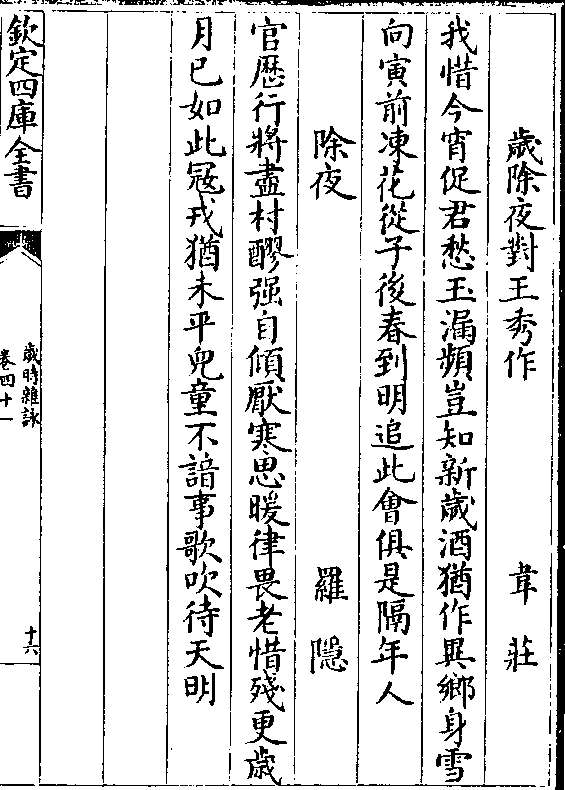 歲除夜對王秀作 韋莊
我惜今宵促君愁玉漏頻豈知新歲酒猶作異鄉身雪
向寅前凍花從子後春到明追此會俱是隔年人
除夜 羅隱
官歷行將盡村醪强自傾厭寒思暖律畏老惜殘更歲
月已如此寇戎猶未平兒童不諳事歌吹待天明
欽定四庫全書
歲時雜詠
卷四十一
十六